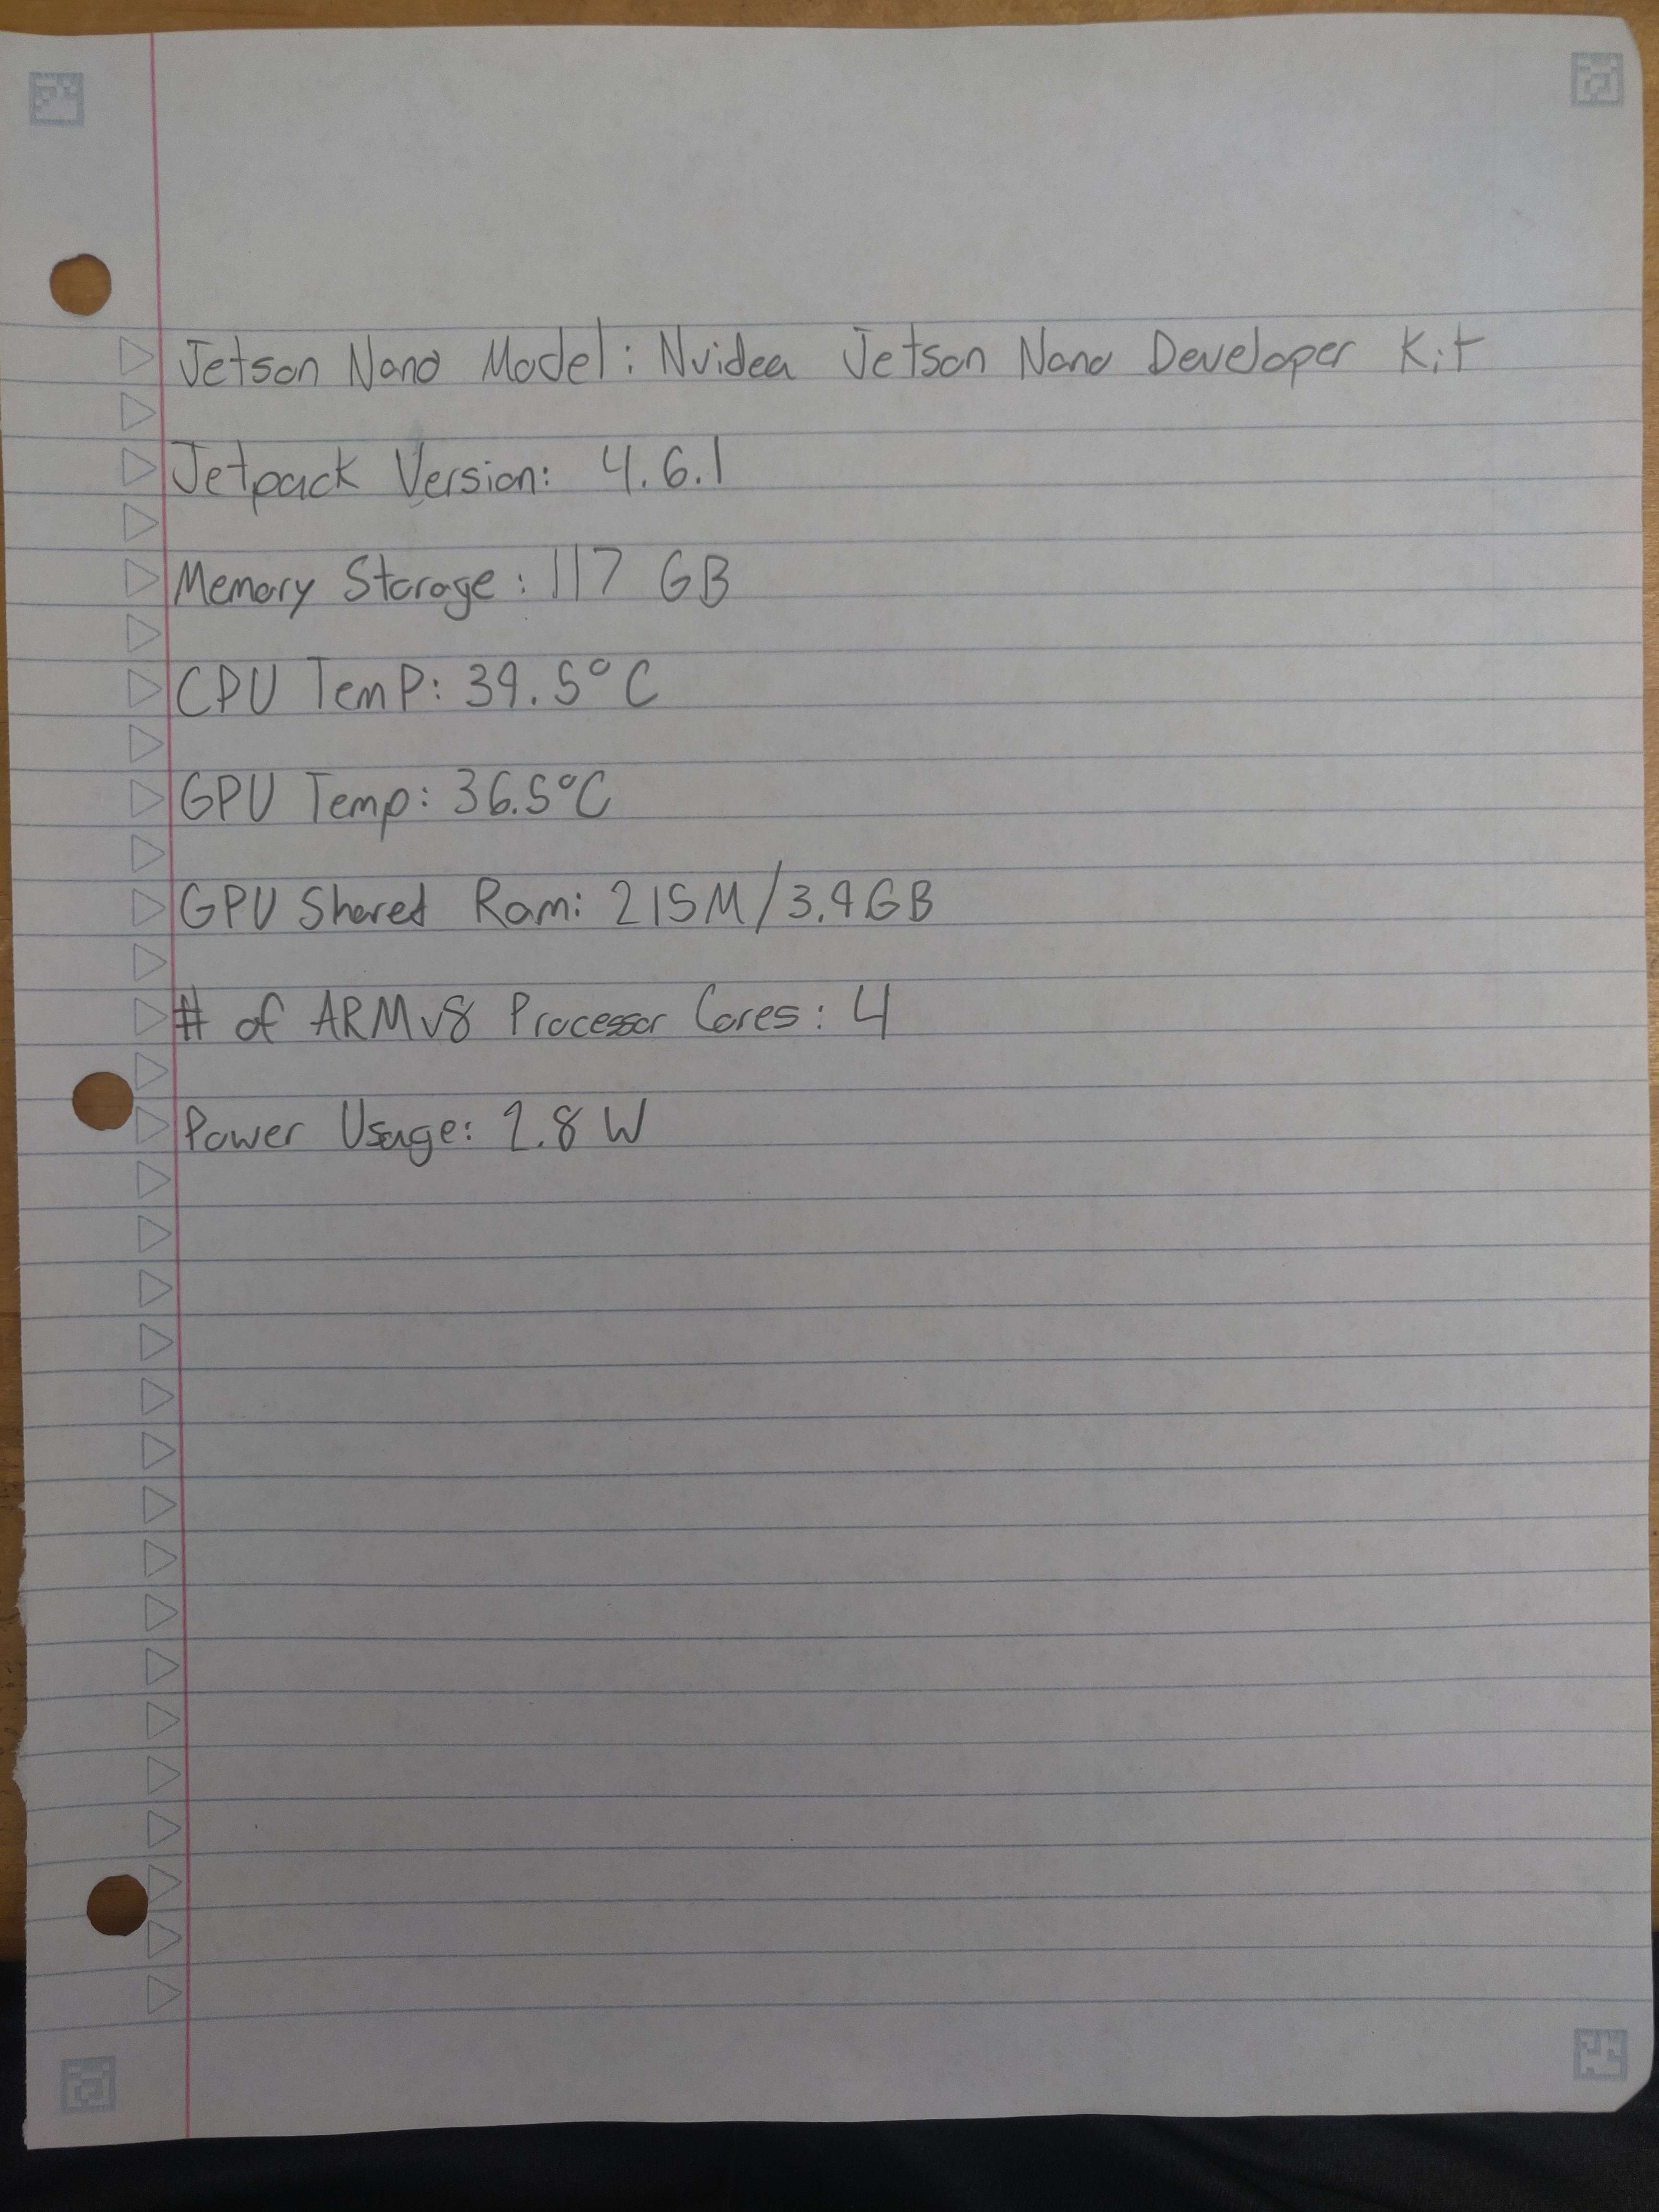 Jetson Nano Model: Nvidea Jetson Nano Developer Kit
Jetpack Version: 4.6.1
Memory Storage: 117 GB
CPU Temp: 39.5°C
GPU Temp: 36.5°C
GPU Shared Ram: 215M/3.9GB
# of ARMv8 Processor Cores: 4
Power Usage: 2.8 W